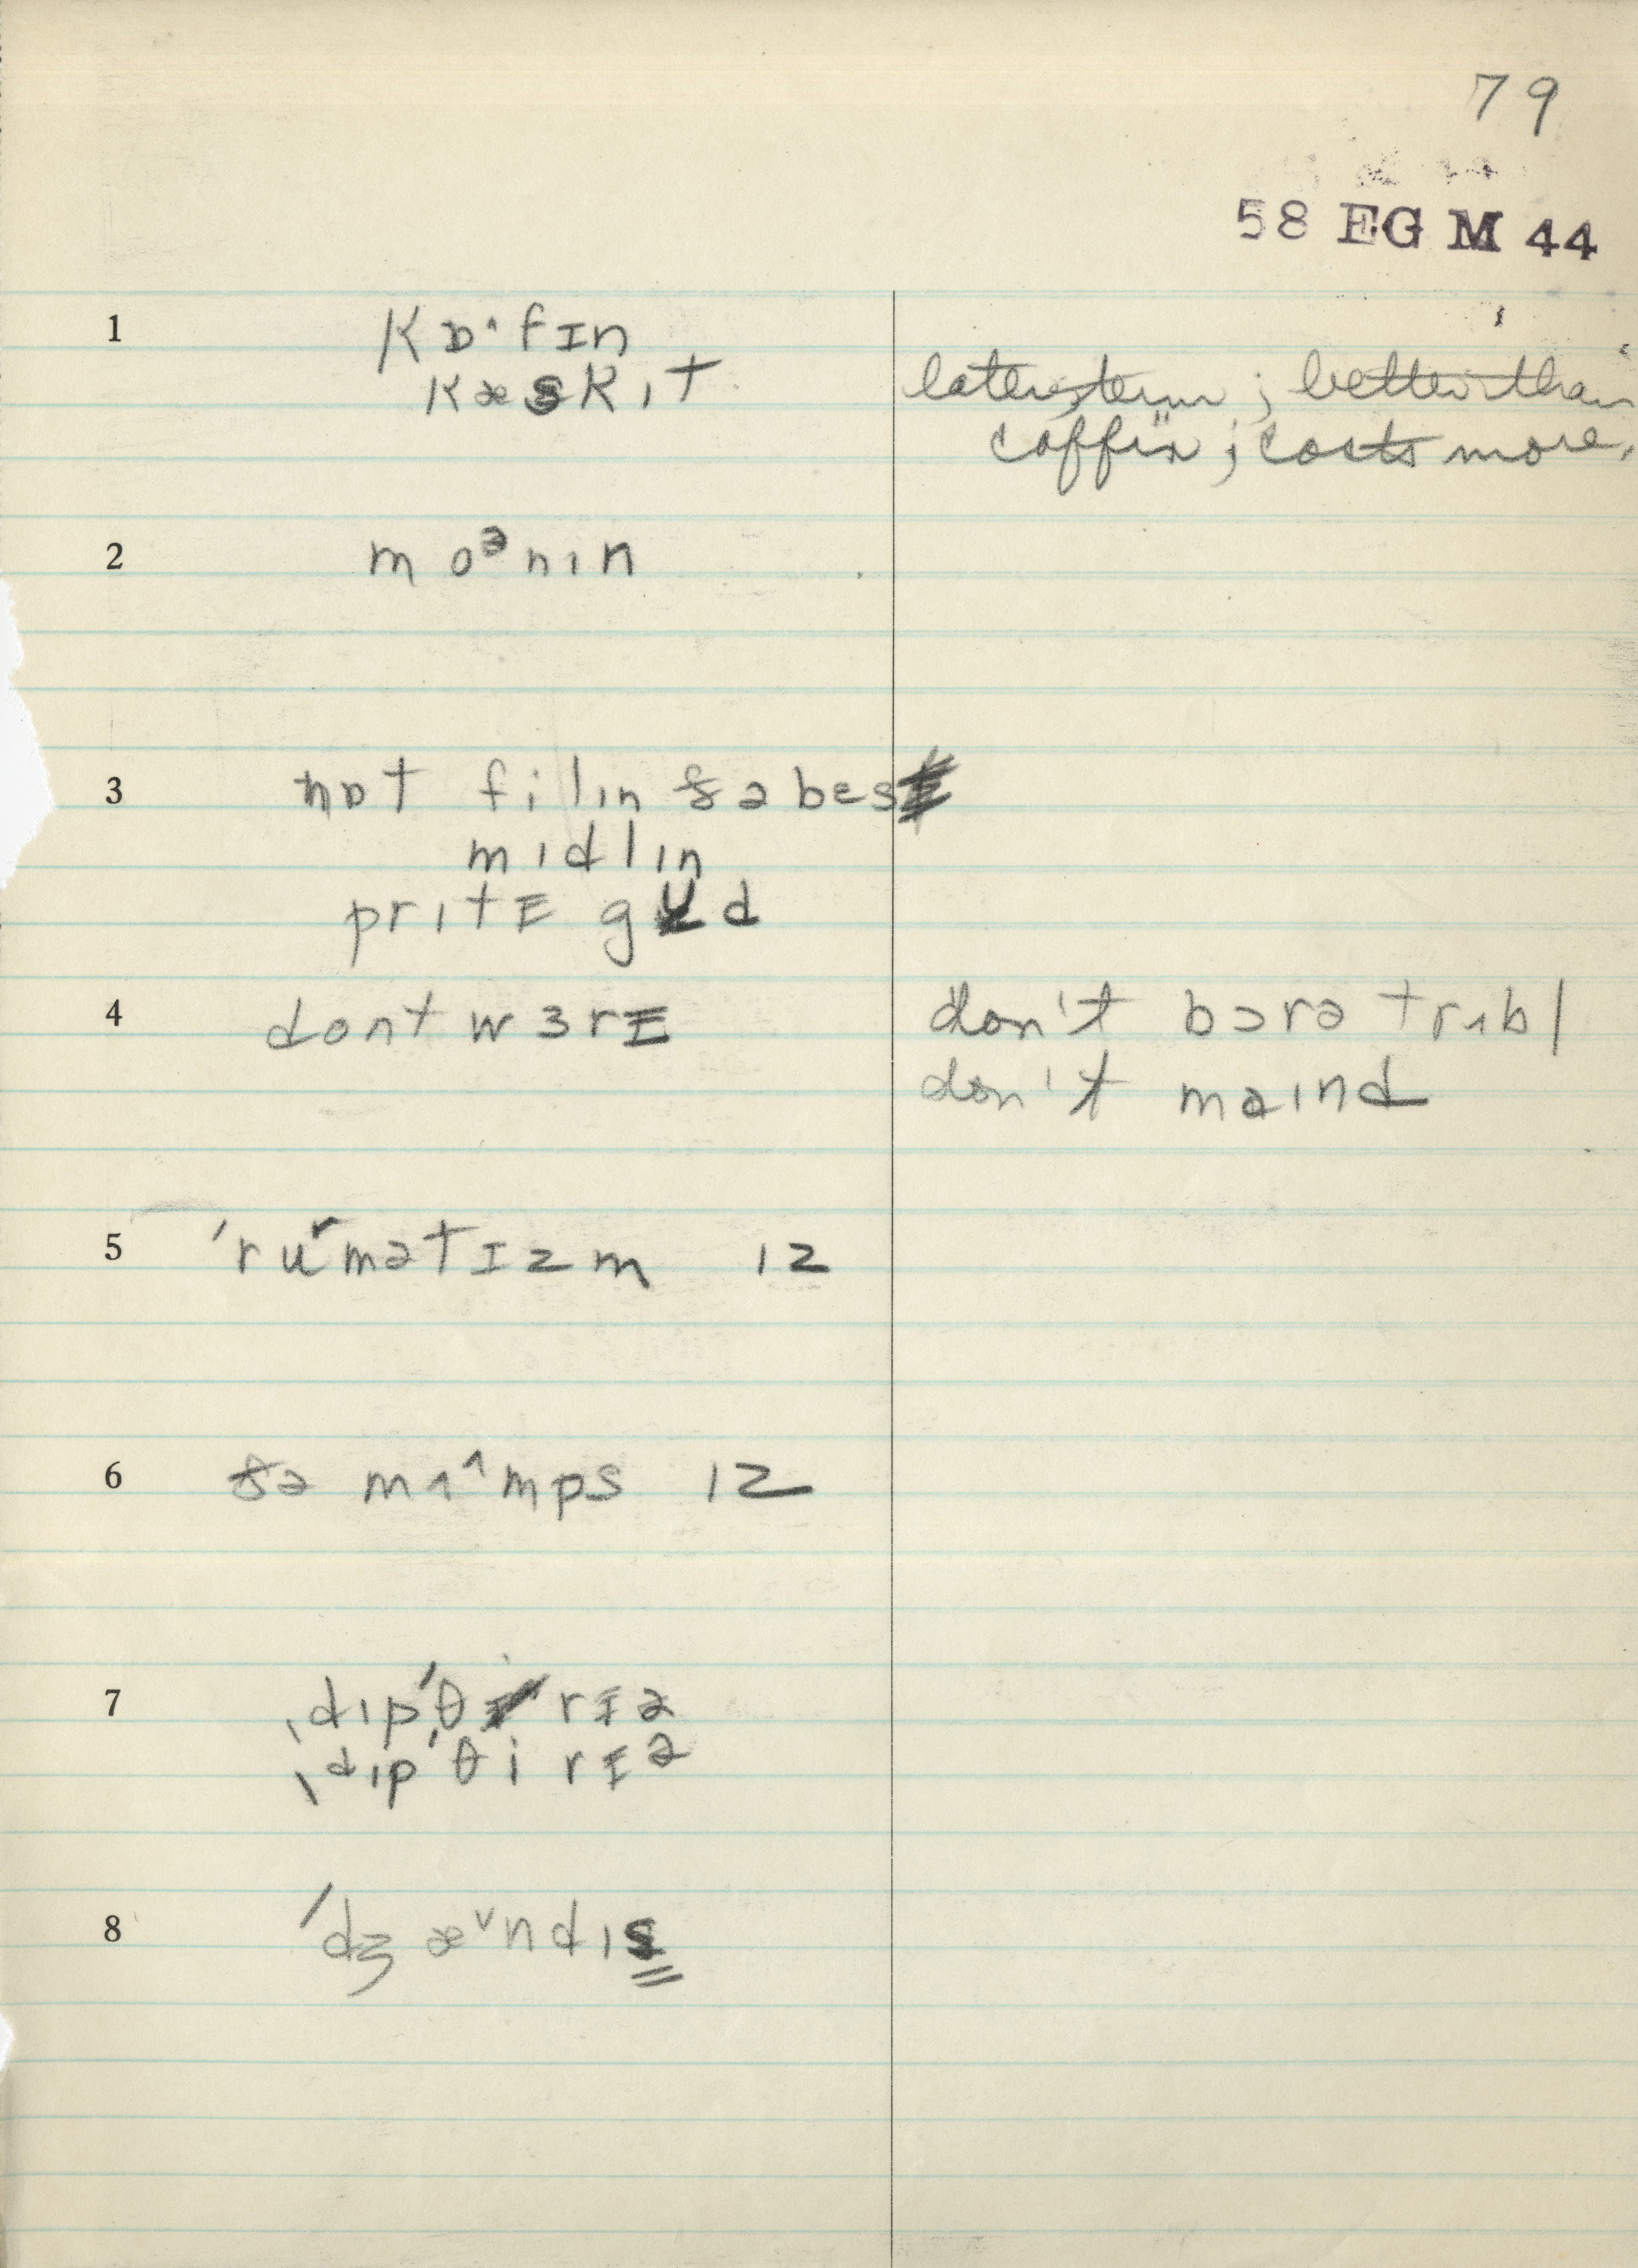 79
58 EG M 44
1 kɒ˄fɪn
kæskɪt later term; better than
coffin; costs more.
2 moᵊnɪn
3 nɒt filɪn ðə bes
mɪdlɪn
prɪtɪ gʊd
4 dont wɜrɪ don't bɔrə trʌbl
don't maɪnd
5 ˈruˈmətɪzm ɪz
6 ðə mʌ˄mps ɪz
7 ˌdɪpˈθ rɪə
ˌdɪpˈθi rɪə
8 ˈdʒæ˅ndɪs